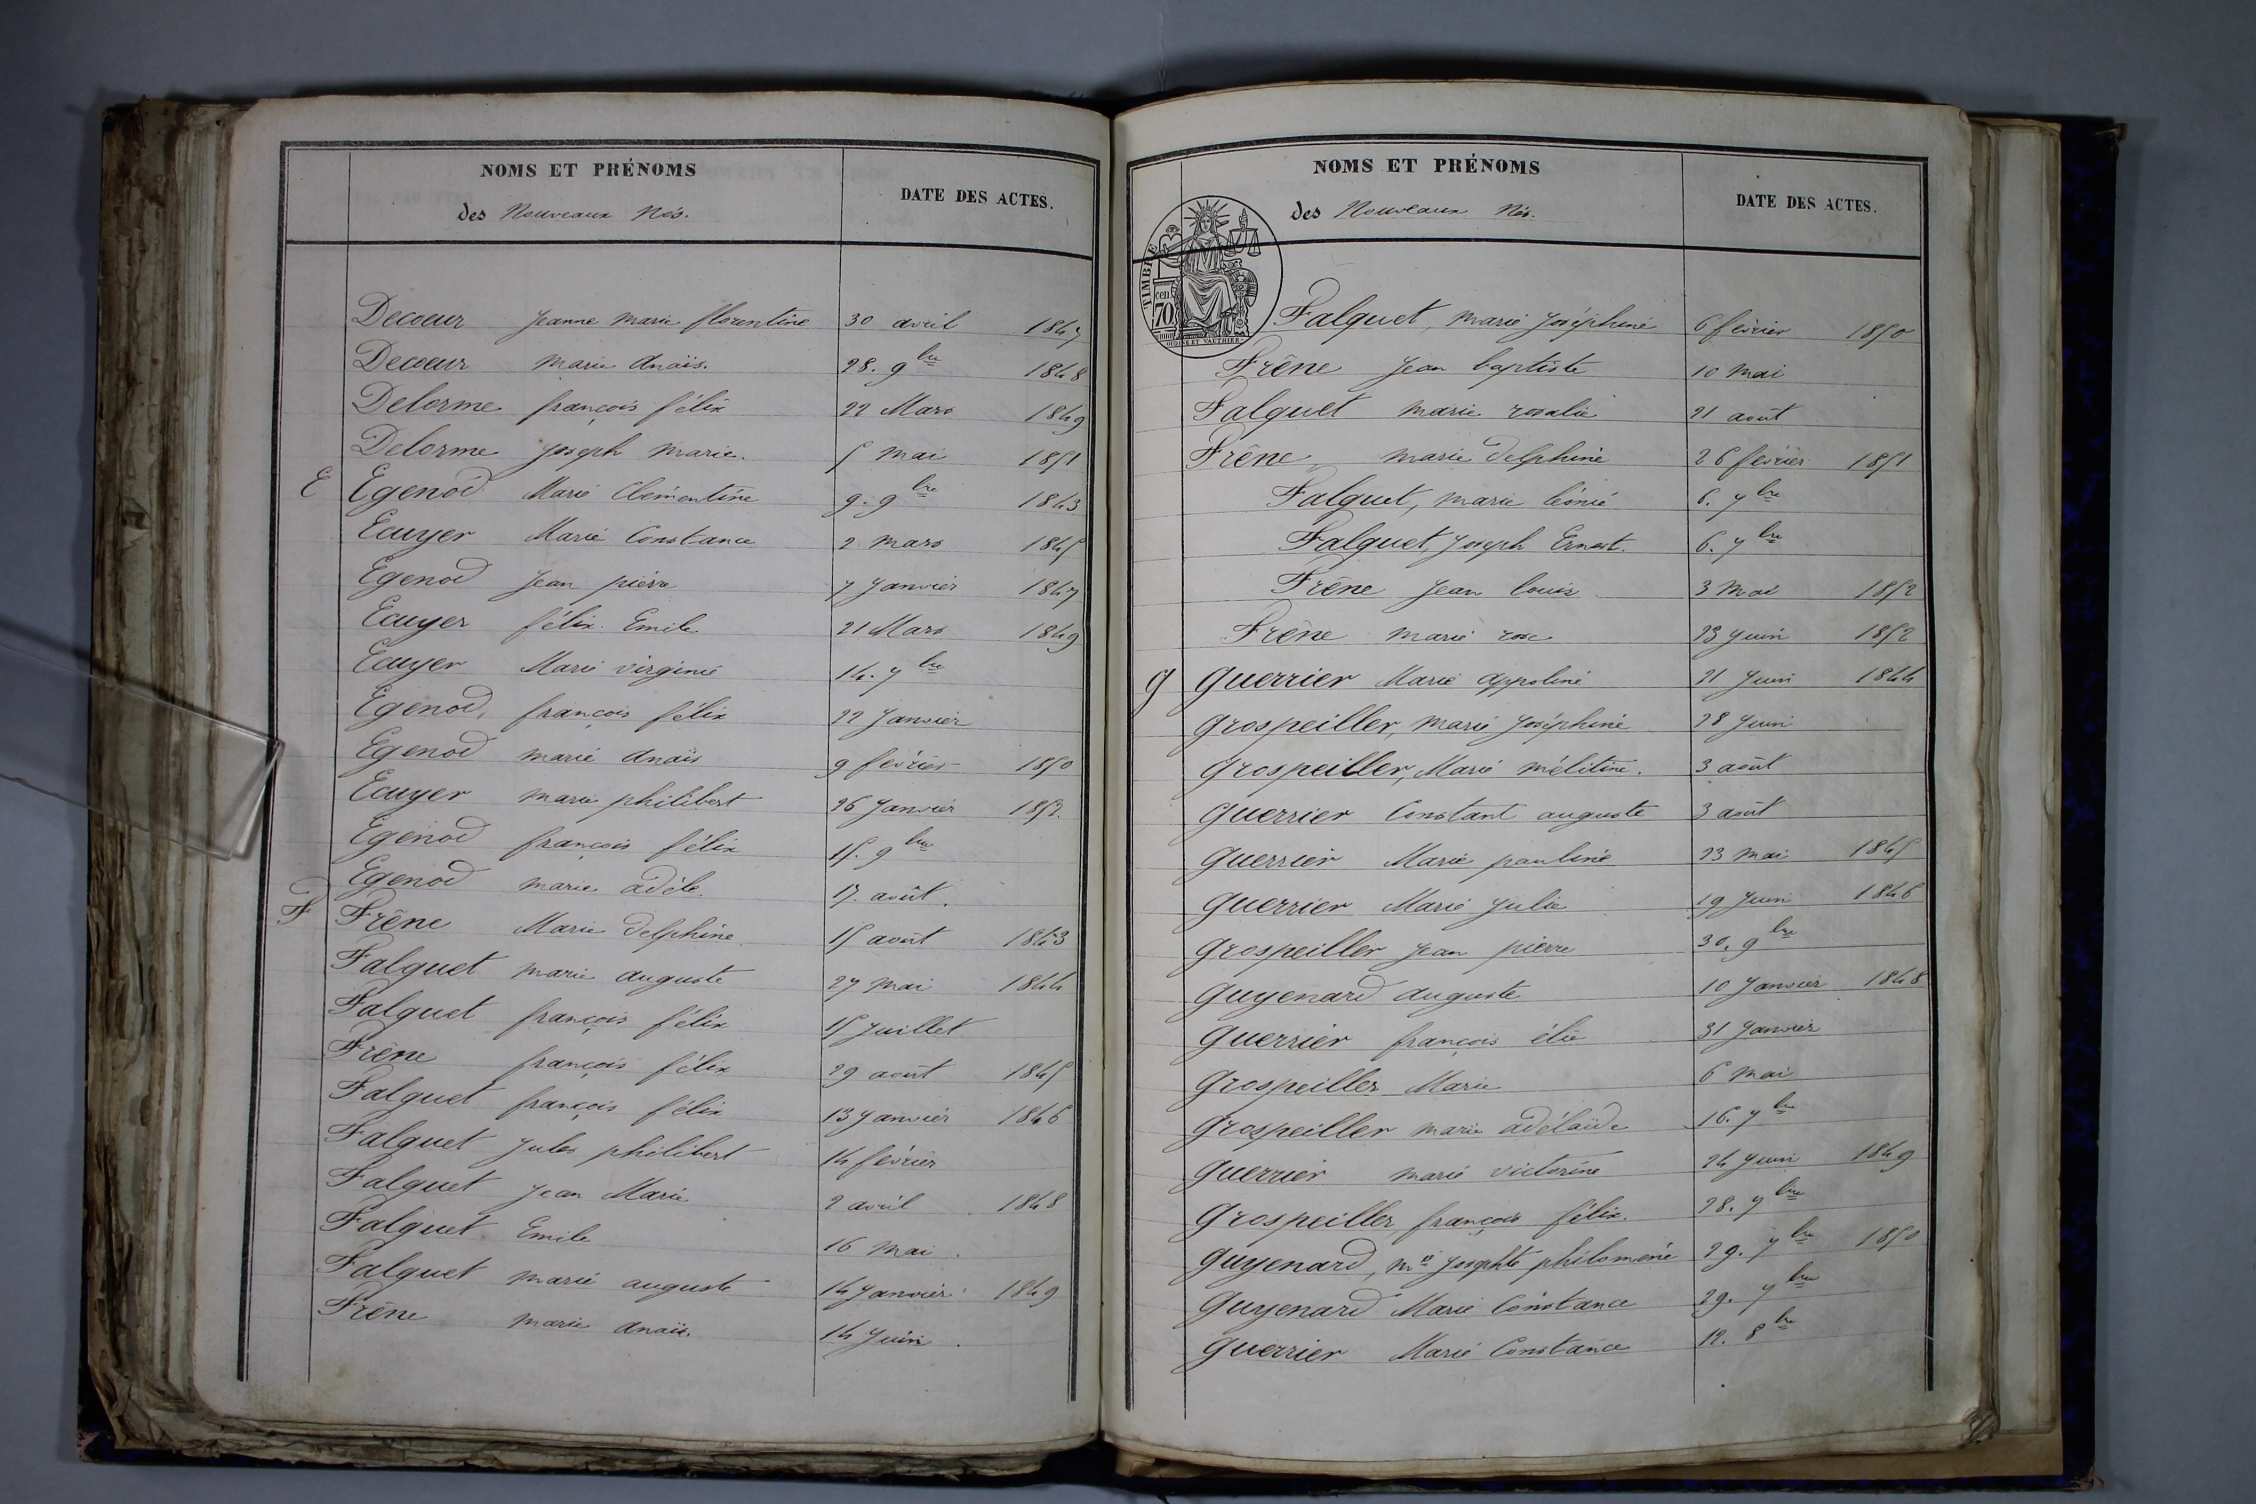 NOMS ET PRÉNOMS
des Nouveaux Nés.
DATE DES ACTES.
Decoeur Jeanne Marie florentine 30 avril 1847
Decoeur Marie Anaïs. 28. 9bre 1848
Delorme françois félix 22 Mars 1849
Delorme Joseph Marie. 5 Mai 1851
E Egenod Marie Clémentine 9. 9bre 1843
Ecuyer Marie Constance 2 Mars 1845
Egenod Jean pierre 7 Janvier 1847
Ecuyer félix Emile 21 Mars 1849
Ecuyer Marie virginie 14. 7bre
Egenod, françois félix 22 Janvier
Egenod marie anaïs 9 février 1850
Ecuyer marie philibert 26 Janvier 1852
Egenod françois félix 15. 9bre
Egenod marie adèle 17. août.
F Frêne Marie delphine 15 août 1843
Falquet marie auguste 27 Mai 1844
Falquet françois félix 15 Juillet
Frêne françois félix 29 août 1845
Falquet françois félix 13 Janvier 1846
Falquet Jules philibert 14 février
Falquet Jean Marie 2 avril 1848
Falquet Emile 16 Mai.
Falquet marie auguste 14 Janvier 1849
Frêne marie anaïs. 14 Juin.
NOMS ET PRÉNOMS
des Nouveaux Nés.
DATE DES ACTES.
TIMBRE
70
OUDINE ET VAUTHIER
Falquet, marie Joséphine 6 février 1850
Frêne Jean baptiste 10 Mai
Falquet marie rosalie 21 août
Frêne marie delphine 26 février 1851
Falquet, marie léonie 6. 7bre
Falquet Joseph Ernest. 6. 7bre
Frêne Jean louis 3 Mai 1852
Frêne marie rose 23 Juin 1852
g guerrier Marie appoline 21 Juin 1844
grospeiller, marie Joséphine 28 Juin
grospeiller, Marie mélitine. 3 août
guerrier Constant auguste 3 août
guerrier Marie pauline 23 Mai 1845
guerrier Marie Julie 19 Juin 1846
grospeiller Jean pierre 30. 9bre
guyenard auguste 10 Janvier 1848
guerrier françois élie 31 Janvier
grospeiller Marie 6 Mai
grospeiller marie adélaïde 16. 7bre
guerrier marie victorine 24 Juin 1849
grospeiller françois félix. 28. 7bre
guyenard, mie Josephte philomène 29. 7bre 1850
guyenard Marie Constance 29. 7bre
guerrier Marie Constance 12. 8bre